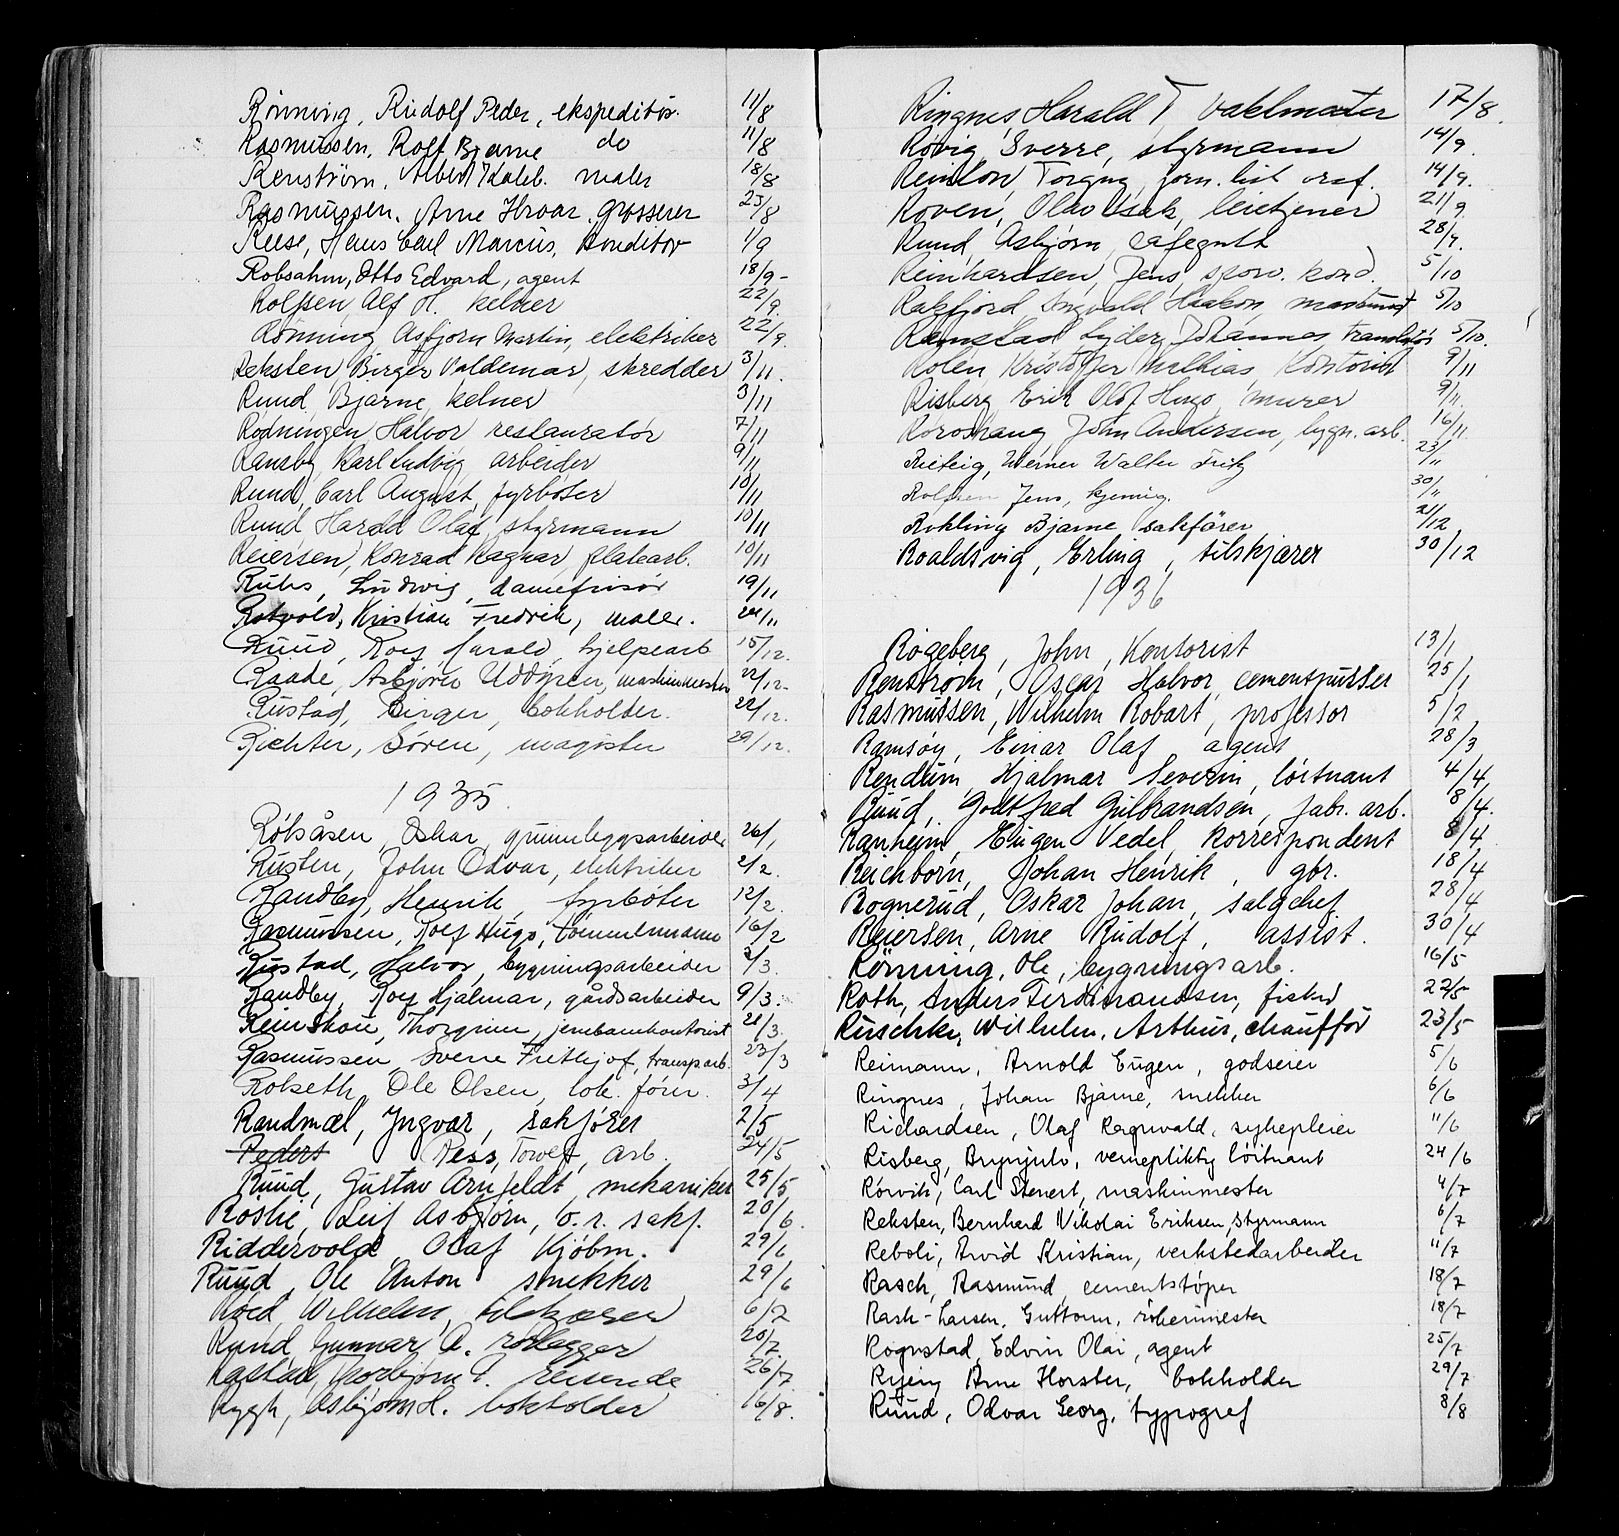 Rönning, Rudolf Peder, ekspeditör. 11/8
Rasmussen, Rolf Bjarne do 11/8
Renström, Albert maler 18/8
Rasmussen, Arne Hroar, grosserer 23/8
Reese, Hans Carl Marcus, konditor 1/9
Robsahm, Otto Edvard, agent 18/9
Rolfsen Alf H. kelner 22/9
Rönning, Asbjörn Martin, elektriker 22/9
Reksten Birger Valdemar, skredder 3/11
Ruud, Bjarne, kelner 3/11
Rödningen Halvor restauratör 7/11
Ransby, Karl Ludvig arbeider 9/11
Ruud, Carl August, fyrböter 10/11
Ruud Harald Olaf, styrmann 10/11
Reiersen, Konrad Ragnar, platearb. 10/11
Ruhs, Ludwig, damefrisör 19/11
Rotvold, Kristian Fredrik, maler. 24/11
Ruud, Rolf Harald, hjelpearb 15/12.
Raade, Asbjörn, maskinmester 22/12.
Rustad, Birger, bokholder. 22/12.
Richter, Sören, magister 29/12.
1935.
Röbsåsen, Oskar, grunnleggsarbeider 26/1
Rusten, John Odvar, elektriker 2/2.
Randby, Henrik, fyrböter 12/2.
Rasmussen, Rolf Hugo, tömmermann 16/2
Rustad, Halvor, bygningsarbeider 2/3.
Randby, Rolf Hjalmar, gårdsarbeider 9/3.
Reinskou, Thorgrim, jernbanekontorist 21/3.
Rasmussen Sverre Frithjof, transp.arb. 23/3
Rokseth, Ole Olsen, lok. förer. 3/4
Randmæl, Yngvar, sakförer 2/5
Peders Ness, Torolf, arb. 24/5
Ruud, Gustav Arnfeldt, mekaniker 25/5
Roslie, Leif Asbjörn, o.r. sakf. 20/6.
Riddervold, Olaf Kjöbm. 29/6
Ruud, Ole Anton snekker 29/6
Wilhelm, tilskjærer 6/7
Ruud, Gunnar A. rörlegger 20/7.
Rastad, Thorbjörn reisende 26/7
Rygh, Asbjörn H. bokholder 16/8.
Ringnes, Harald T vaktmester 17/8.
Rövig, Sverre, styrmann 14/9.
Reinton, Torgny, jorn. 14/9.
Roven, Olav Isak, leietjener 21/9
Ruud, Asbjörn, cafegutt 28/9.
Reinhardsen, Jens, sporv. kond. 5/10
Rakfjord, Ingvald Haakon, maskinist 5/10
Ramstad Lyder Johannes, translatör 5/10.
Rolén, Kristoffer Mathias, kontorist 9/11
Risberg, Erik Olof Hugo, murer 9/11.
Roroshaug, John Andersen, bygn. arb. 16/11.
Rietig, Werner Walter Fritz 23/11
Rolfsen, Jens, 30/11
Rohling Bjarne sakförer 21/12
Roaldsvig, Erling, tilskjærer 30/12
1936
Rogeberg, John, Kontorist 13/1
Renström, Oscar Halvor, cementpusser 25/1
Rasmussen, Wilhelm Robart, professor 5/2
Ramsöy, Einar Olaf agent 28/3
Rendum, Hjalmar Severin, löitnant 4/4
Ruud, Godtfred Gulbrandsen, fabr. arb. 8/4.
Ranheim, Eugen Vedel, korrespondent 8/4
Reichborn, Johan Henrik, gbr. 18/4
Rognerud, Oskar Johan, salgchef 28/4
Reiersen, Arne Rudolf, assist. 30/4
Rönning, Ole, bygningsarb. 16/5
Roth, Anders Ferdinandsen, fisker 22/5
Ruschke, Wilhelm, Arthur, chaufför 23/5
Reimann, Arnold Eugen, godseier 5/6
Ringnes, Johan Bjarne, snekker 6/6
Richardsen, Olaf Ragnvald, sykepleier 11/6
Risberg, Brynjulv, vernepliktig löitnant 24/6
Rörvik, Carl Stenert, maskinmester 4/7
Reksten, Bernhard Nikolai Eriksen, styrmann 6/7
Reboli, Arvid Kristian, verkstedarbeider 11/7
Rasch, Rasmund, cementstöper 18/7
Rash-Larsen, Guttorm, rökerimester 18/7
Rognstad, Edvin Olai, agent 25/7
Ryeng Arne Horster, bokholder 29/7
Ruud, Odvar Georg, typograf 8/8